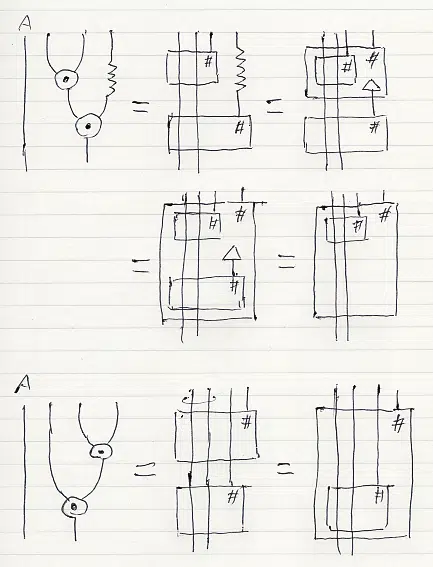 A
# # #
= =
# #
# # # #
= =
#
A
# #
= =
# #